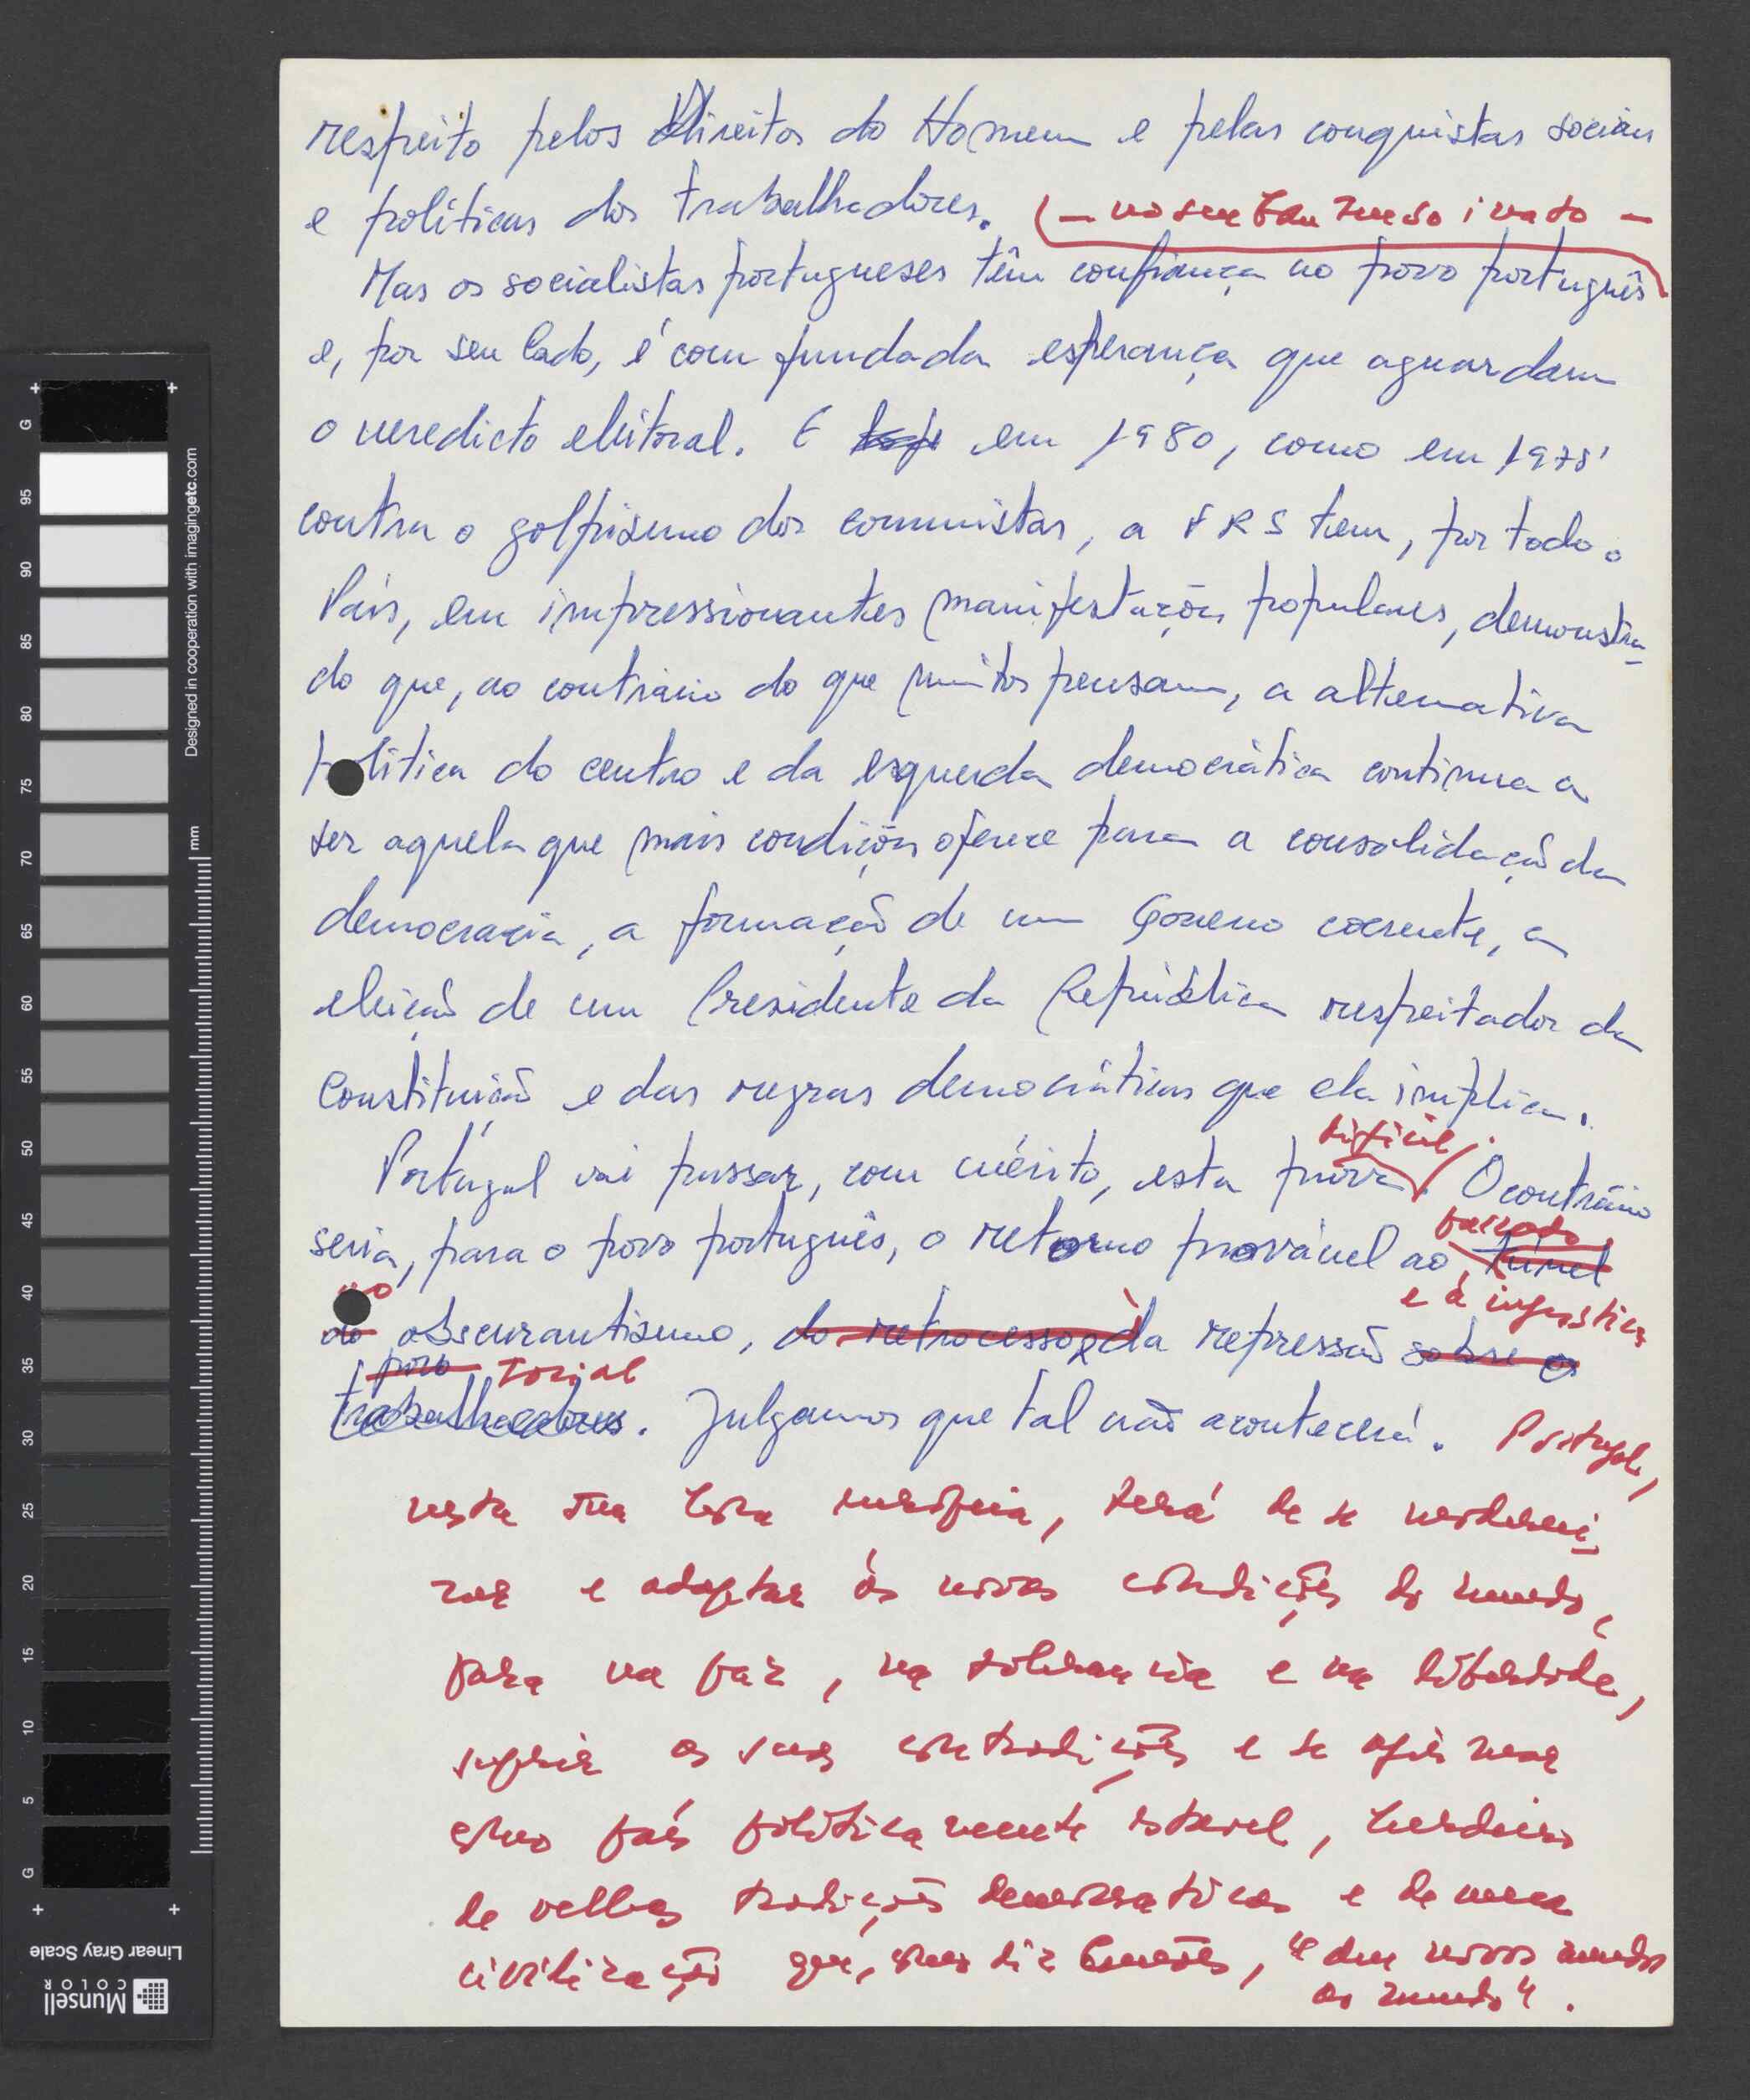 respeito pelos Direitos do Homem e pelas conquistas sociais
e políticas dos trabalhadores. (— no seu bom senso inato —
Mas os socialistas portugueses têm confiança no povo português
e, por seu lado, é com fundada esperança que aguardam
o veredicto eleitoral. E hoje em 1980, como em 1975
contra o golpismo dos comunistas, a FRS tem, por todo o
País, em impressionantes manifestações populares, demonstra-
do que, ao contrário do que muitos pensam, a alternativa
política do centro e da esquerda democrática continua a
ser aquela que mais condições oferece para a consolidação da
democracia, a formação de um Governo coerente, a
eleição de um Presidente da República respeitador da
Constituição e das regras democráticas que ela implica.
difícil.
Portugal vai passar, com mérito, esta prova. O contrário
passado,
seria, para o povo português, o retorno provável ao túnel
ao
e à injustiça
do obscurantismo, do retrocesso e da repressão sobre os
povo social
trabalhadores. Julgamos que tal não acontecerá. Portugal,
nesta sua hora europeia, terá de se moderni-
zar e adaptar às novas condições do mundo,
para na paz, na tolerância e na liberdade,
superar as suas contradições e se afirmar
como país politicamente estavel, herdeiro
de velhas tradições democraticas e de uma
civilização que, como diz Camões, "deu novos mundos
ao mundo".
Designed in cooperation with imagingetc.com
mm
G
95
90
85
80
75
70
65
60
55
50
45
40
35
30
25
20
15
10
5
G
Linear Gray Scale
Munsell
COLOR